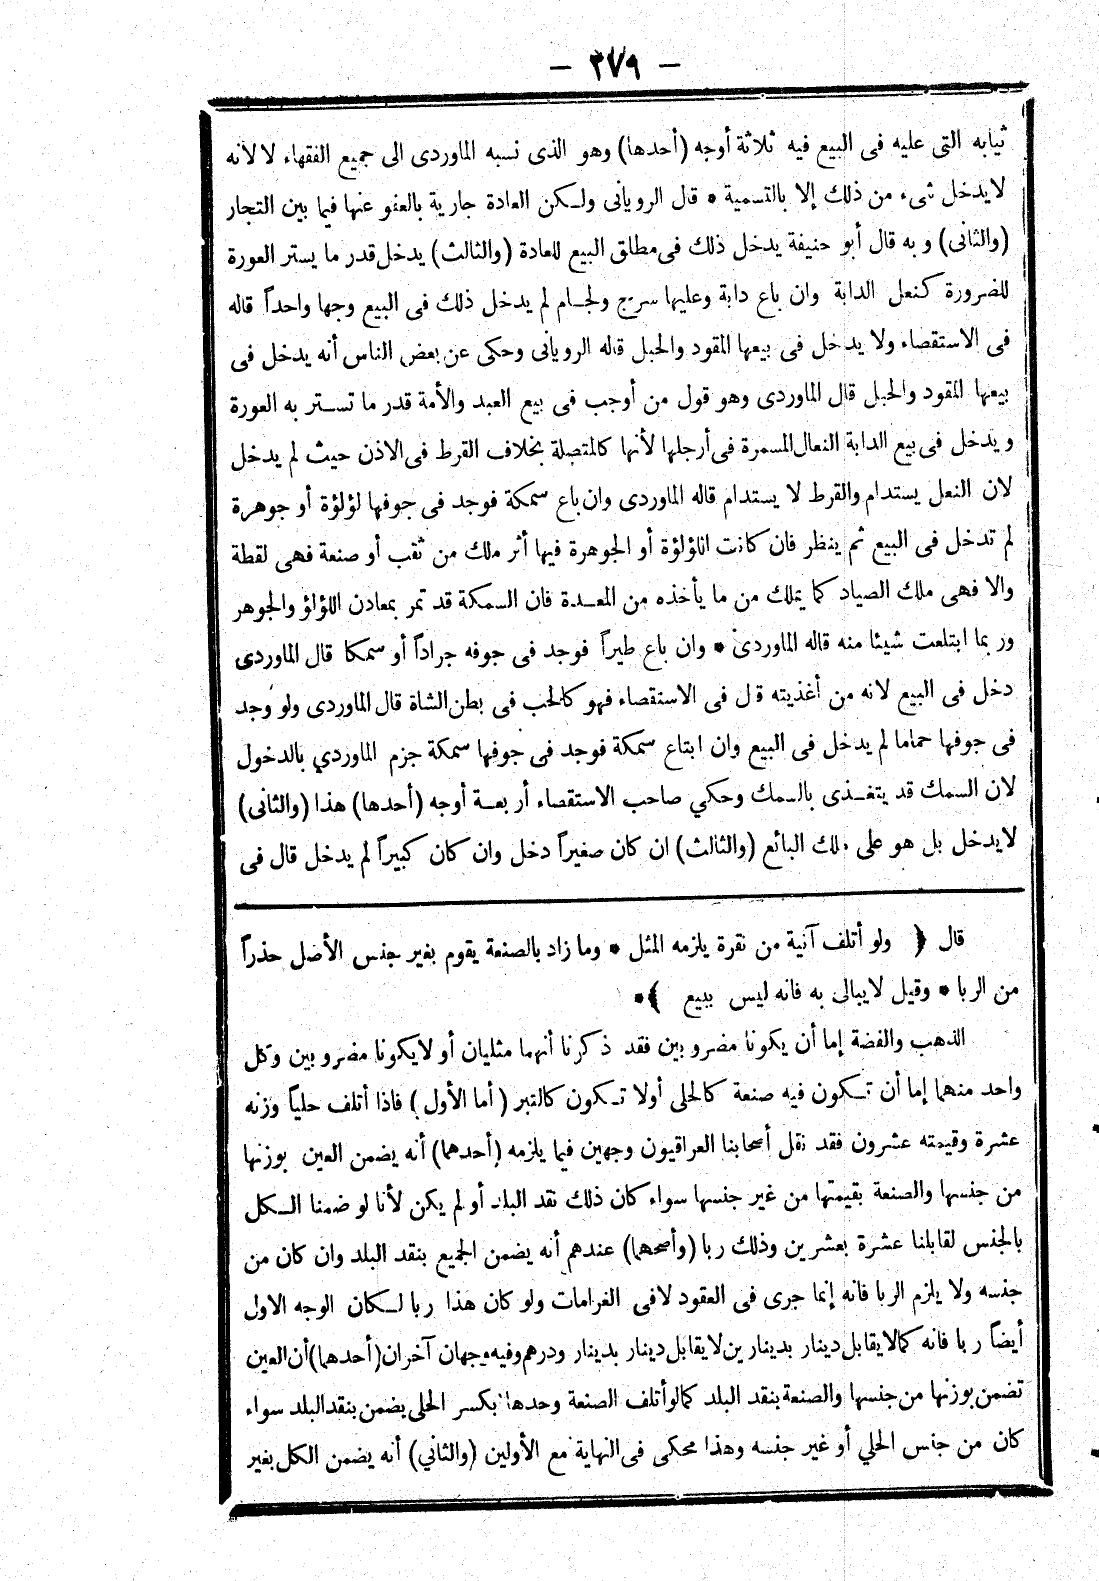 — ٢٧٩ —
ثيابه التى عليه فى البيع فيه ثلاثة أوجه (أحدها) وهو الذى نسبه الماوردى الى جميع الفقهاء لا لأنه
لايدخل شىء من ذلك إلا بالتسمية * قال الرويانى ولكن العادة جارية بالعفو عنها فيما بين التجار
(والثانى) وبه قال أبو حنيفة يدخل ذلك فى مطلق البيع للعادة (والثالث) يدخل قدر ما يستر العورة
للضرورة كنعل الدابة وان باع دابة وعليها سرج ولجام لم يدخل ذلك فى البيع وجها واحداً قاله
فى الاستقصاء ولا يدخل فى بيعها المقود والحبل قاله الرويانى وحكى عن بعض الناس أنه يدخل فى
بيعها المقود والحبل قال الماوردى وهو قول من أوجب فى بيع العبد والأمة قدر ما تستر به العورة
ويدخل فى بيع الدابة النعال المسمرة فى أرجلها لأنها كالمتصلة بخلاف القرط فى الاذن حيث لم يدخل
لان النعل يستدام والقرط لا يستدام قاله الماوردى وان باع سمكة فوجد فى جوفها لؤلؤة أو جوهرة
لم تدخل فى البيع ثم ينظر فان كانت اللؤلؤة أو الجوهرة فيها أثر ملك من ثقب أو صنعة فهى لقطة
والا فهى ملك الصياد كما يملك من ما يأخذه من المعدة فان السمكة قد تمر بمعادن اللؤلؤ والجوهر
وربما ابتلعت شيئا منه قاله الماوردى * وان باع طيراً فوجد فى جوفه جراداً أو سمكا قال الماوردى
دخل فى البيع لانه من أغذيته قال فى الاستقصاء فهو كالحب فى بطن الشاة قال الماوردى ولو وجد
فى جوفها حماما لم يدخل فى البيع وان ابتاع سمكة فوجد فى جوفها سمكة جزم الماوردي بالدخول
لان السمك قد يتغذى بالسمك وحكي صاحب الاستقصاء أربعة أوجه (أحدها) هذا (والثانى)
لايدخل بل هو على ملك البائع (والثالث) ان كان صغيراً دخل وان كان كبيراً لم يدخل قال فى
قال ﴿ ولو أتلف آنية من نقرة يلزمه المثل * وما زاد بالصنعة يقوم بغير جنس الأصل حذراً
من الربا * وقيل لايبالى به فانه ليس ببيع ﴾*
الذهب والفضة إما أن يكونا مضروبين فقد ذكرنا أنهما مثليان أو لايكونا مضروبين وكل
واحد منهما إما أن تكون فيه صنعة كالحلى أولا تكون كالتبر (أما الأول) فاذا أتلف حلياً وزنه
عشرة وقيمته عشرون فقد نقل أصحابنا العراقيون وجهين فيما يلزمه (أحدهما) أنه يضمن العين بوزنها
من جنسها والصنعة بقيمتها من غير جنسها سواء كان ذلك نقد البلد أو لم يكن لأنا لو ضمنا الكل
بالجنس لقابلنا عشرة بعشرين وذلك ربا (وأصحهما) عندهم أنه يضمن الجميع بنقد البلد وان كان من
جنسه ولا يلزم الربا فانه إنما جرى فى العقود لافى الغرامات ولو كان هذا ربا لكان الوجه الاول
أيضاً ربا فانه كمالايقابل دينار بدينارين لايقابل دينار بدينار ودرهم وفيه وجهان آخران (أحدهما) أن العين
تضمن بوزنها من جنسها والصنعة بنقد البلد كمالوأتلف الصنعة وحدها بكسر الحلى يضمن بنقدالبلد سواء
كان من جنس الحلي أو غير جنسه وهذا محكى فى النهاية مع الأولين (والثاني) أنه يضمن الكل بغير